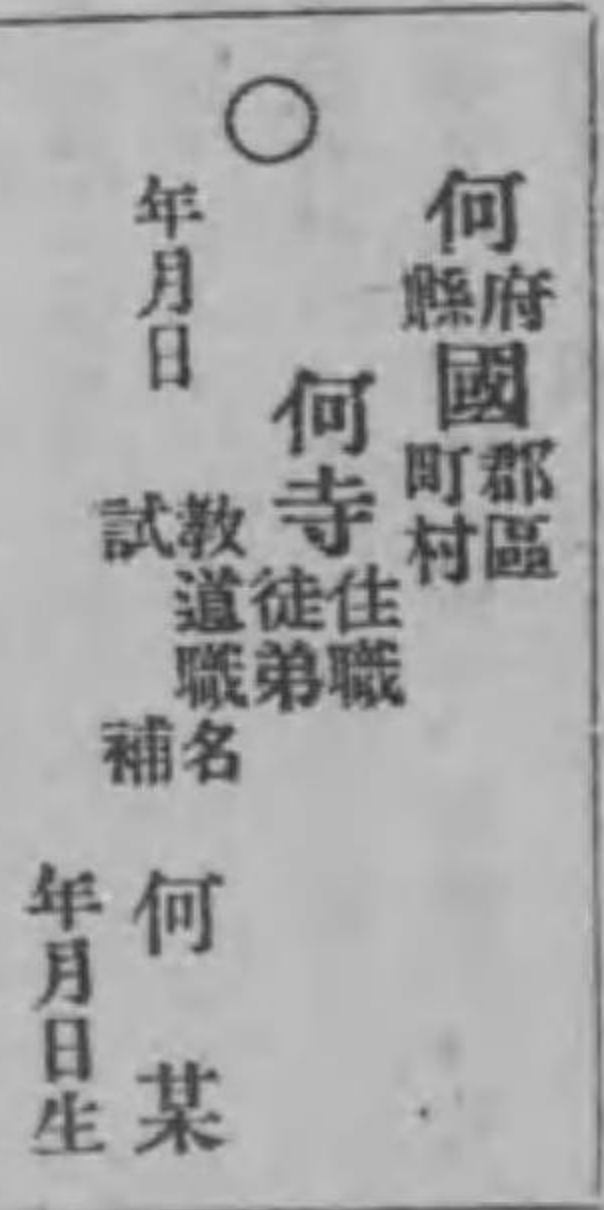 何府縣國郡區町村
何寺住職徒弟
教道職名試補
年月日
何某
年月日生